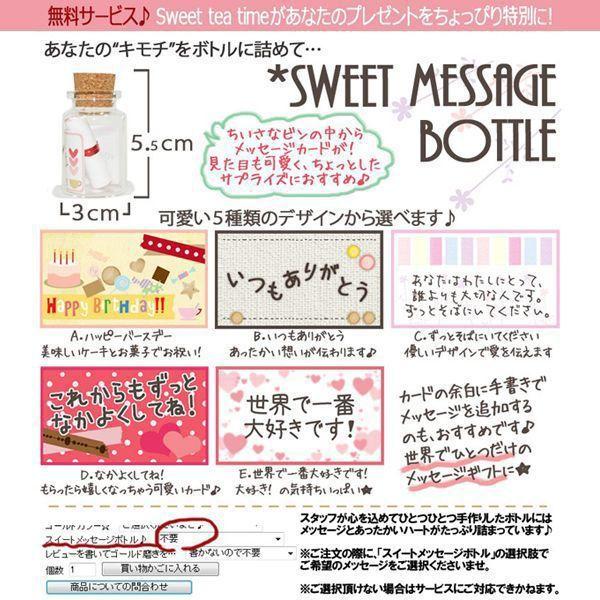 無料サービス♪ Sweet tea timeがあなたのプレゼントをちょっぴり特別に!
あなたの“キモチ”をボトルに詰めて…
*SWEET MESSAGE
BOTTLE
5.5cm
3cm
ちいさなビンの中から
メッセージカードが!
見た目も可愛く、ちょっとした
サプライズにおすすめ♪
可愛い5種類のデザインから選べます♪
Happy Birthday!!
いつもありがとう
あなたはわたしにとって、
誰よりも大切な人です。
ずっとそばにいてください。
A.ハッピーバースデー
美味しいケーキとお菓子でお祝い!
B.いつもありがとう
あったかい想いが伝わります♪
C.ずっとそばにいてください
優しいデザインで愛を伝えます
これからもずっと
なかよくしてね!
世界で一番
大好きです!
カードの余白に手書きで
メッセージを追加する
のも、おすすめです!
世界でひとつだけの
メッセージギフトに★
D.なかよくしてね!
もらったら嬉しくなっちゃう可愛いカード♪
E.世界で一番大好きです!
大好き!の気持ちいっぱい★
スイートメッセージボトル♪ 不要
レビューを書いてゴールド磨きを… 書かないので不要
個数 1 買い物かごに入れる
商品についての問合わせ
スタッフが心を込めてひとつひとつ手作りしたボトルには
メッセージとあったかいハートがたっぷり詰まっています♪
※ご注文の際に、「スイートメッセージボトル」の選択肢で
ご希望のメッセージをご選択くださいませ。
※ご選択頂けない場合はサービスにご対応できかねます。